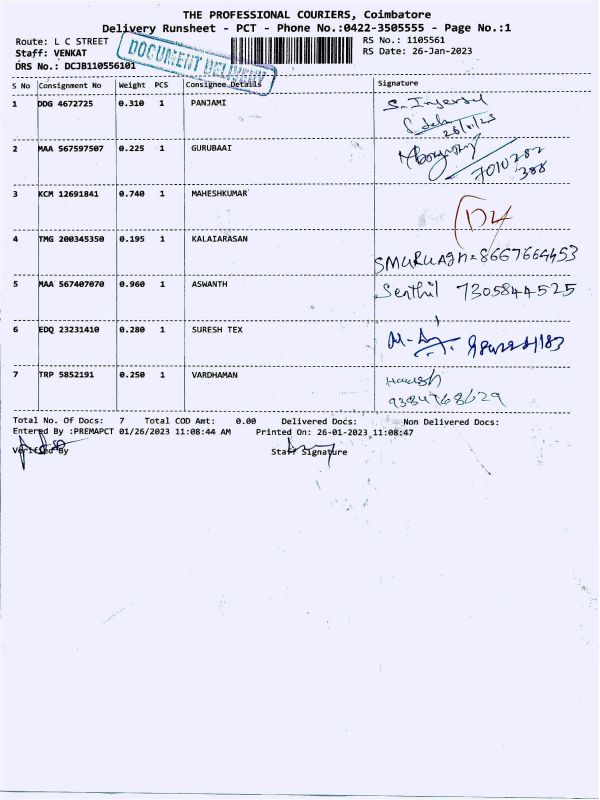 THE PROFESSIONAL COURIERS, Coimbatore
Delivery Runsheet - PCT - Phone No.:0422-3505555 - Page No.:1
Route: L C STREET
Staff: VENKAT
DRS No.: DCJB110556101
DOCUMENT DELIVERY
RS No.: 1105561
RS Date: 26-Jan-2023
S No Consignment No Weight PCS Consignee Details Signature
1 DDG 4672725 0.310 1 PANJAMI
26/01/23
2 MAA 567597507 0.225 1 GURUBAAI
7010282
388
3 KCM 12691841 0.740 1 MAHESHKUMAR
4 TMG 200345350 0.195 1 KALAIARASAN
SMURUAGN=8667664453
5 MAA 567407070 0.960 1 ASWANTH Senthil 7305844525
6 EDQ 23231410 0.280 1 SURESH TEX
7 TRP 5852191 0.250 1 VARDHAMAN Harish
9384768629
Total No. Of Docs: 7 Total COD Amt: 0.00 Delivered Docs: Non Delivered Docs:
Entered By :PREMAPCT 01/26/2023 11:08:44 AM Printed On: 26-01-2023 11:08:47
Verified By Staff Signature